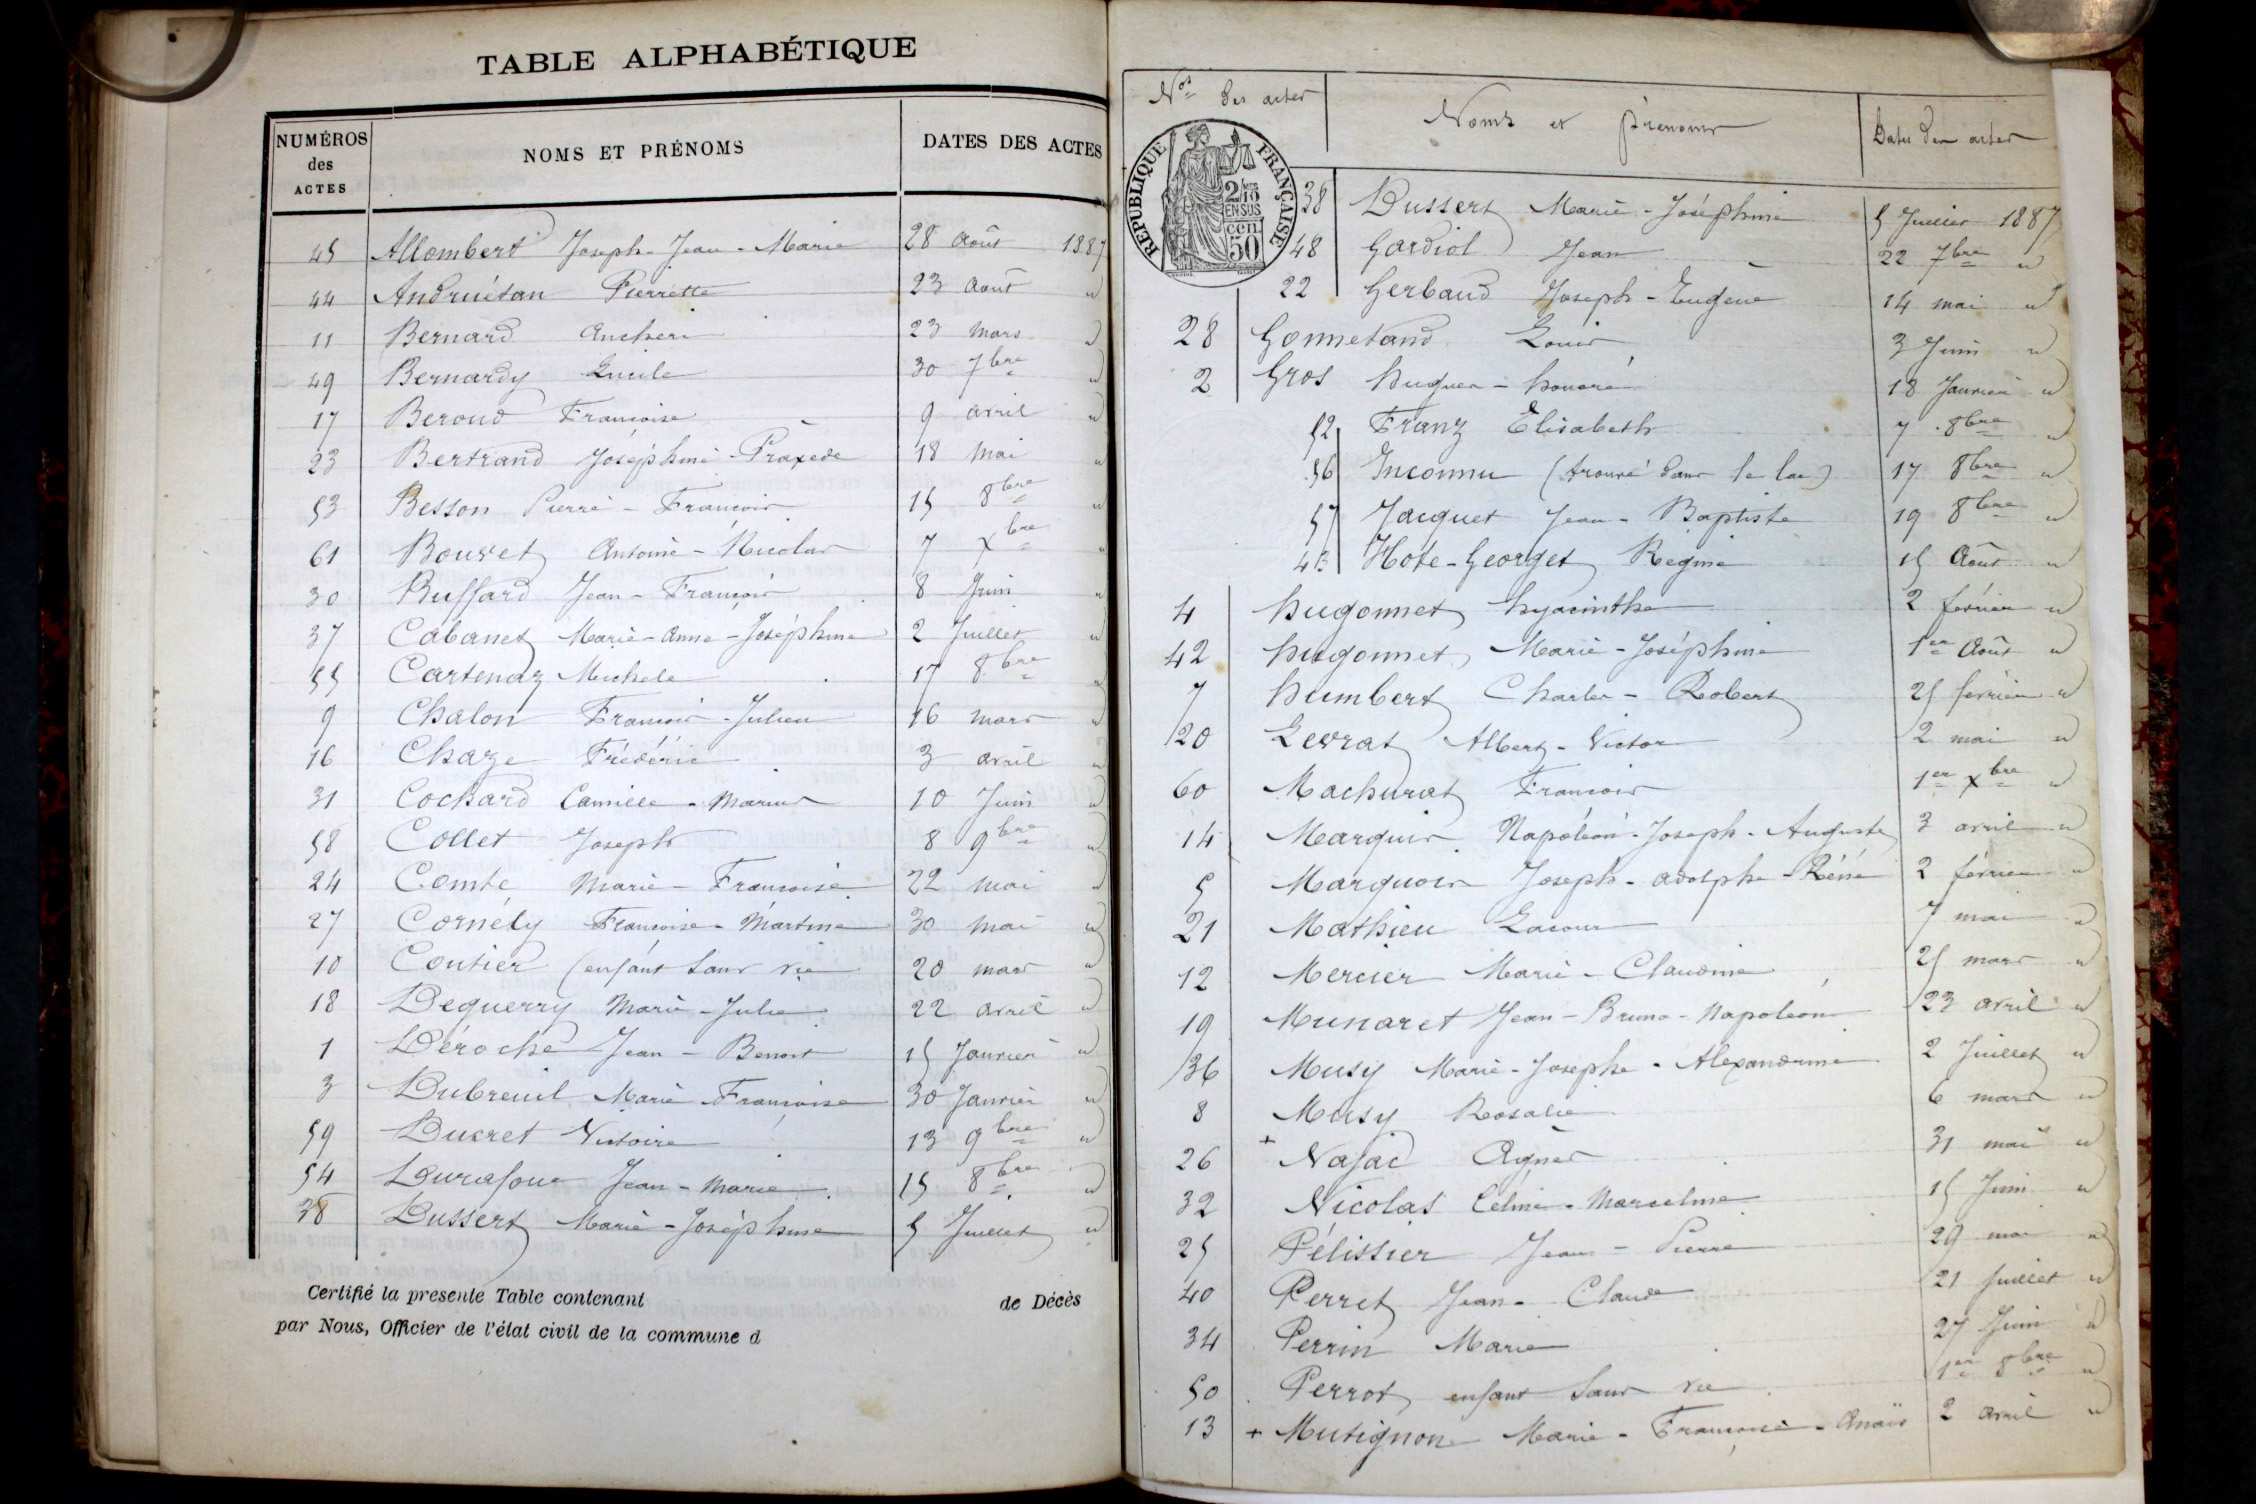 TABLE ALPHABÉTIQUE
NUMÉROS des ACTES NOMS ET PRÉNOMS DATES DES ACTES
45 Allombert Joseph-Jean-Marie 28 Août 1887
44 Andruétan Pierrette 23 Août "
11 Bernard 23 mars "
49 Bernardy Lucile 30 7bre "
17 Beroud Francoise 9 avril "
23 Bertrand Joséphine-Praxede 18 Mai "
53 Besson Pierre-Francois 15 8bre "
61 Bouvet Antoine-Nicolas 7 Xbre "
30 Buffard Jean-François 8 Juin "
37 Cabanet Marie-Anne-Joséphine 2 Juillet "
55 Cartenaz Michele 17 8bre "
9 Chalon Francois-Julien 16 mars "
16 Chaze Frédéric 3 avril "
31 Cochard Camille-Marius 10 Juin "
58 Collet Joseph 8 9bre "
24 Comte Marie-Francoise 22 mai "
27 Cornély Francoise-Martine 30 mai "
10 Coutier (enfant sans vie 20 mars "
18 Deguerry Marie-Julie 22 avril "
1 Déroche Jean-Benoit 15 Janvier "
3 Dubreuil Marie Françoise 30 Janvier "
59 Ducret Victoire 13 9bre "
54 Durafour Jean-Marie 15 8bre "
38 Dussert Marie-Joséphine 5 Juillet "
Certifié la presente Table contenant de Décès
par Nous, Officier de l'état civil de la commune d
Nos des actes Noms et prénoms Dates des actes
RÉPUBLIQUE FRANÇAISE
2/10 EN SUS
50 cen
38 Dussert Marie-Joséphine 5 Juillet 1887
48 Gardiol Jean 22 7bre "
22 Gerbaud Joseph-Eugene 14 mai "
28 Gonnetand Louis 3 Juin "
2 Gros hugues-honoré 18 Janvier "
52 Franz Elisabeth 7 8bre "
56 Inconnu (trouvé dans le lac) 17 8bre "
57 Jacquet Jean-Baptiste 19 8bre "
43 Hote-Georget Régine 15 Août "
4 hugonnet hyacinthe 2 février "
42 hugonnet Marie-Joséphine 1er Août "
7 humbert Charles-Robert 25 février "
20 Levrat Albert-Victor 2 mai "
60 Machurat Francois 1er Xbre "
14 Marquis Napoléon-Joseph-Auguste 3 avril "
5 Marquois Joseph-adolphe-Réné 2 février "
21 Mathieu Lacour 7 mai "
12 Mercier Marie-Claudine 25 mars "
19 Munaret Jean-Bruno-Napoléon 23 avril "
36 Musy Marie-Josephe-Alexandrine 2 Juillet "
8 Musy Rosalie 6 mars "
26 + Najac Agnès 31 mai "
32 Nicolas Céline-Marceline 15 Juin "
25 Pélissier Jean-Pierre 29 mai "
40 Perret Jean-Claude 21 Juillet "
34 Perrin Marie 27 Juin "
50 Perrot enfant sans vie 1er 8bre "
13 + Mutignon Marie-Francoise-Anaïs 2 avril "